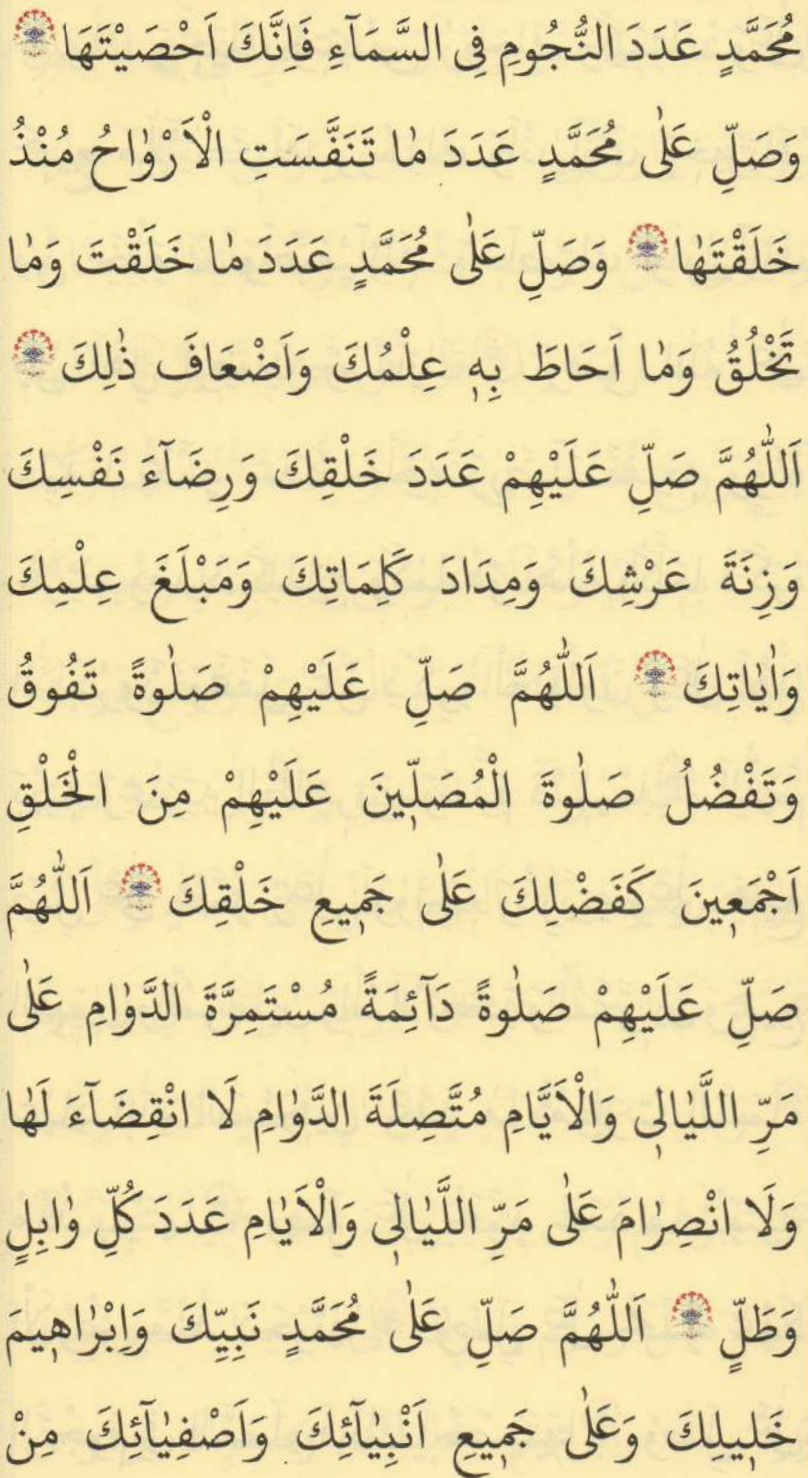 مُحَمَّدٍ عَدَدَ النُّجُومِ فِى السَّمَآءِ فَاِنَّكَ اَحْصَيْتَهَا
وَصَلِّ عَلٰى مُحَمَّدٍ عَدَدَ مٰا تَنَفَّسَتِ الْاَرْوٰاحُ مُنْذُ
خَلَقْتَهٰا وَصَلِّ عَلٰى مُحَمَّدٍ عَدَدَ مٰا خَلَقْتَ وَمٰا
تَخْلُقُ وَمٰا اَحَاطَ بِهٖ عِلْمُكَ وَاَضْعَافَ ذٰلِكَ
اَللّٰهُمَّ صَلِّ عَلَيْهِمْ عَدَدَ خَلْقِكَ وَرِضَآءَ نَفْسِكَ
وَزِنَةَ عَرْشِكَ وَمِدَادَ كَلِمَاتِكَ وَمَبْلَغَ عِلْمِكَ
وَاٰيٰاتِكَ اَللّٰهُمَّ صَلِّ عَلَيْهِمْ صَلٰوةً تَفُوقُ
وَتَفْضُلُ صَلٰوةَ الْمُصَلّٖينَ عَلَيْهِمْ مِنَ الْخَلْقِ
اَجْمَعٖينَ كَفَضْلِكَ عَلٰى جَمٖيعِ خَلْقِكَ اَللّٰهُمَّ
صَلِّ عَلَيْهِمْ صَلٰوةً دَآئِمَةً مُسْتَمِرَّةَ الدَّوٰامِ عَلٰى
مَرِّ اللَّيٰالٖى وَالْاَيَّامِ مُتَّصِلَةَ الدَّوٰامِ لَا انْقِضَآءَ لَهٰا
وَلَا انْصِرٰامَ عَلٰى مَرِّ اللَّيٰالٖى وَالْاَيّٰامِ عَدَدَ كُلِّ وٰابِلٍ
وَطَلٍّ اَللّٰهُمَّ صَلِّ عَلٰى مُحَمَّدٍ نَبِيِّكَ وَاِبْرٰاهٖيمَ
خَلٖيلِكَ وَعَلٰى جَمٖيعِ اَنْبِيٰآئِكَ وَاَصْفِيٰآئِكَ مِنْ